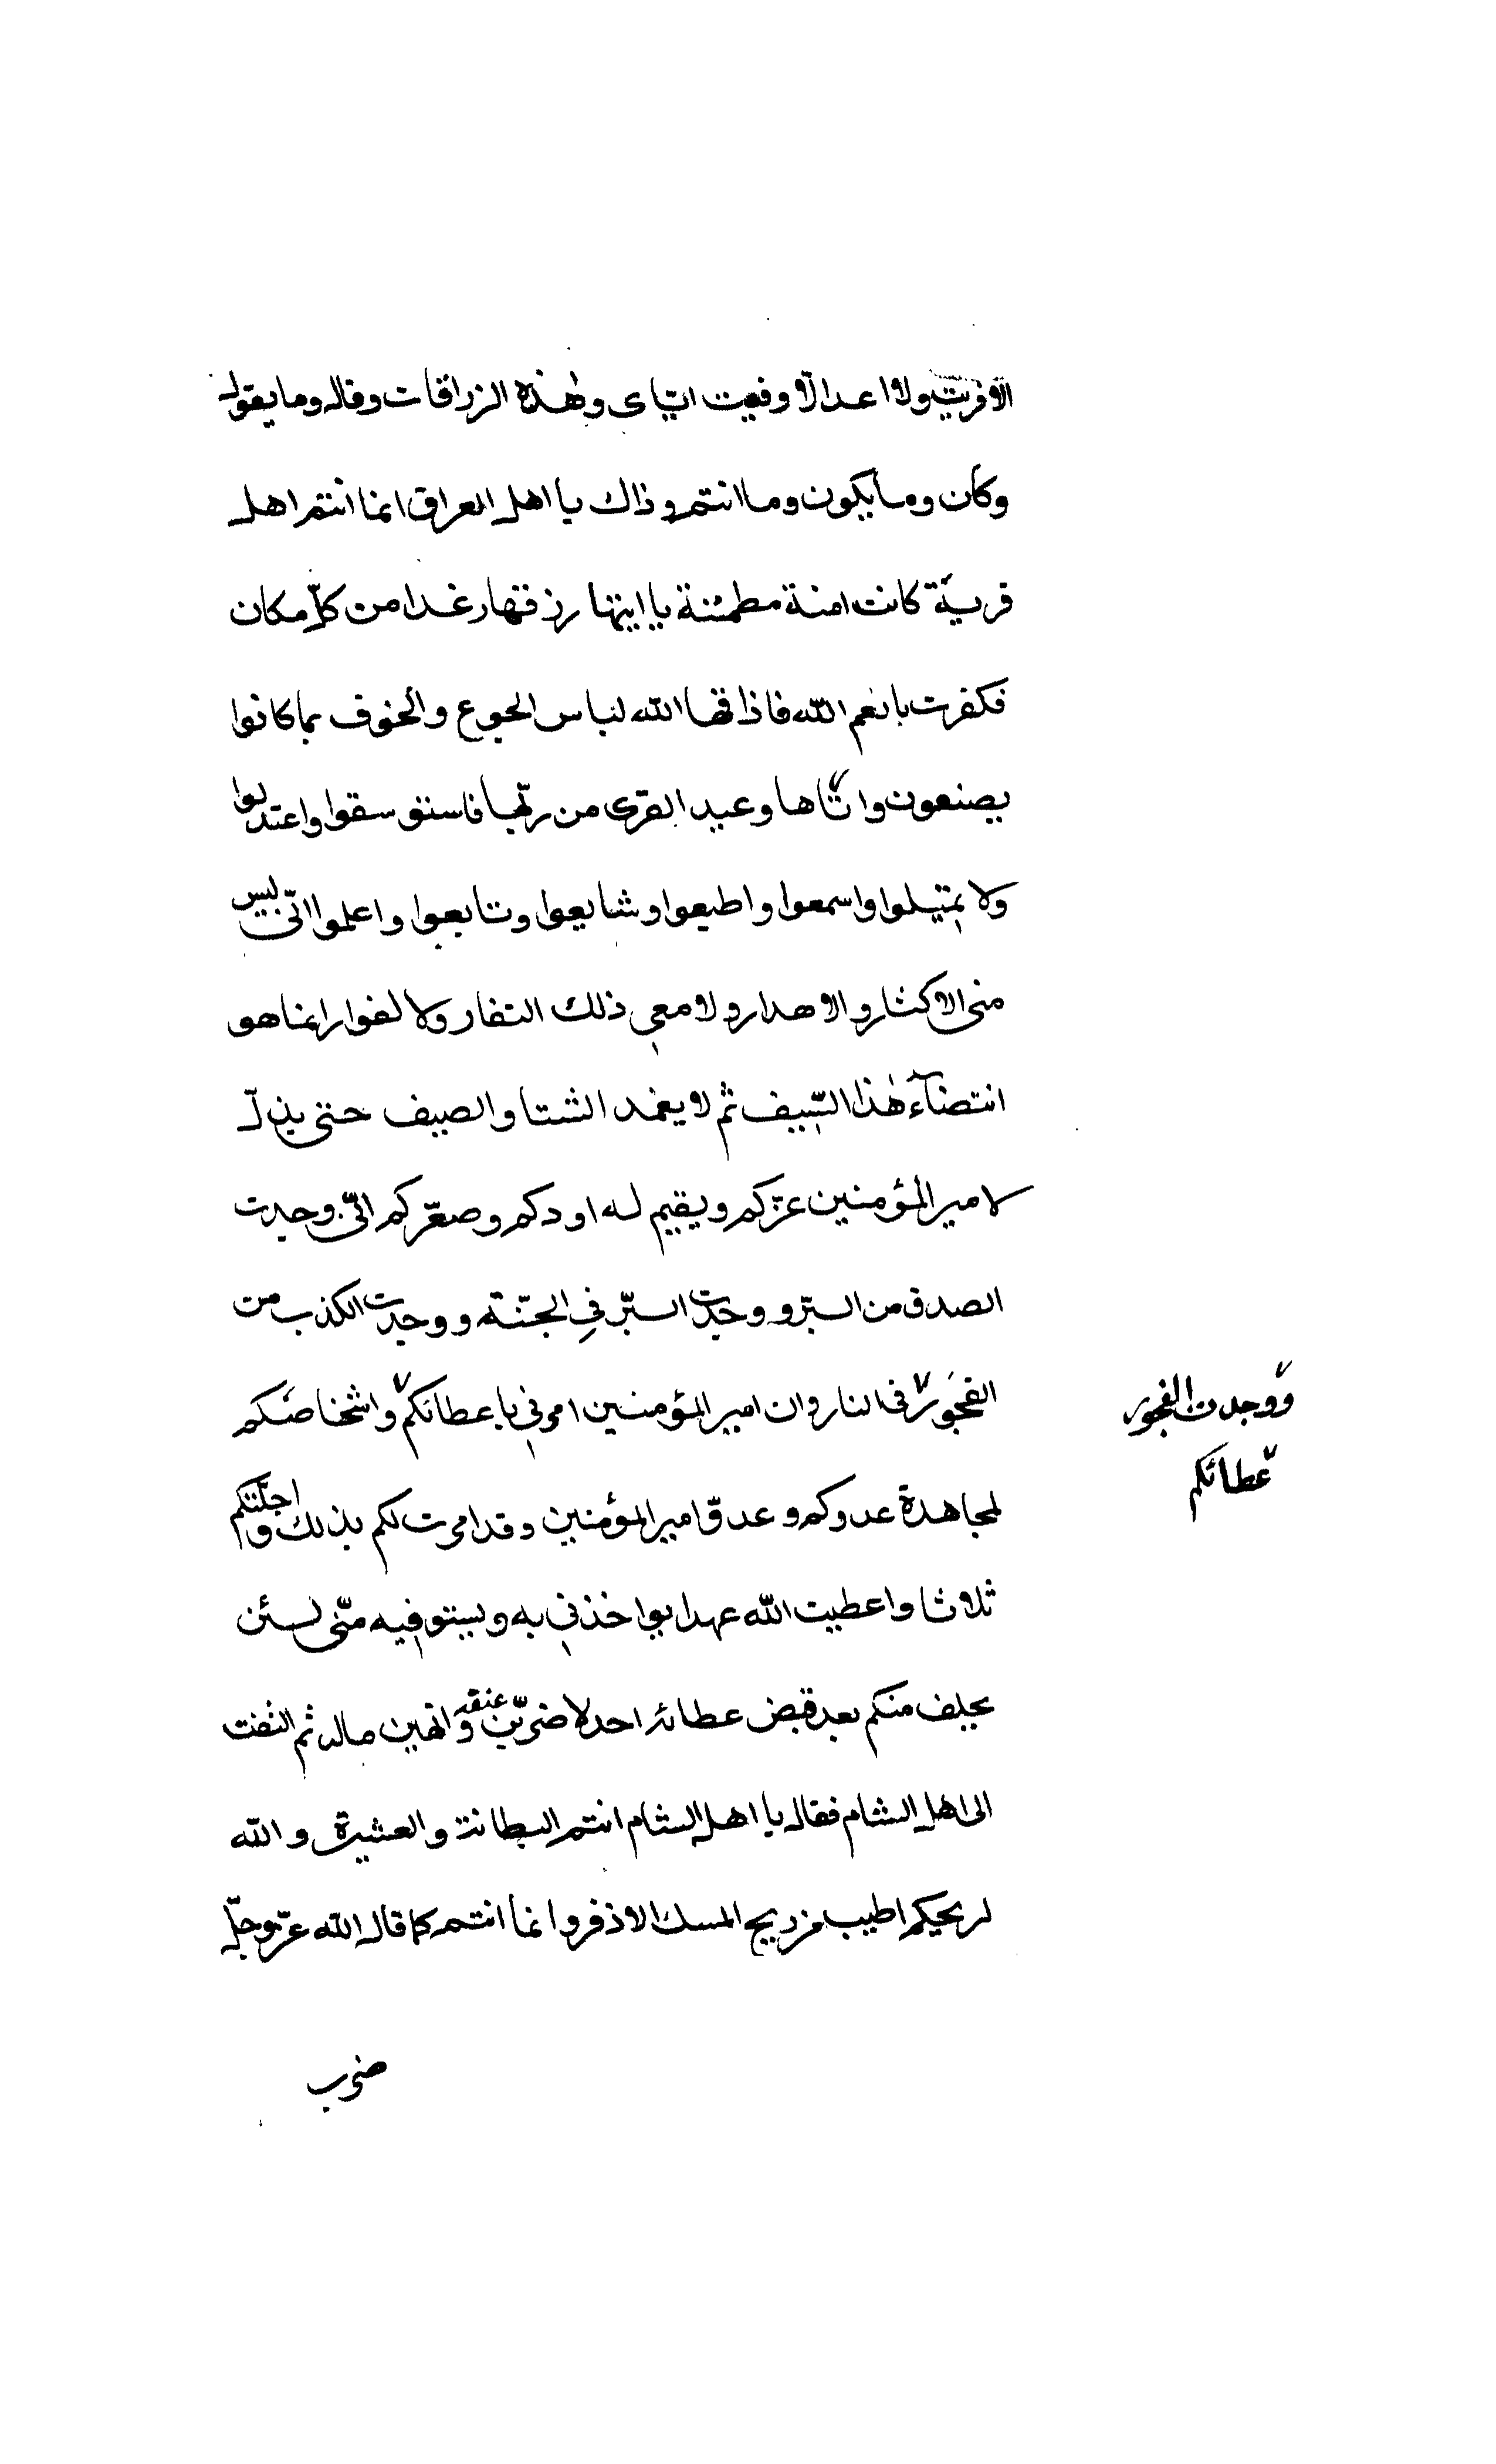 الا فريت ولا اعد الا وفيت اياى وهذه الزرافات وقال وما يقول
وكان وما يكون وما انتم وذاك يا اهل العراق انما انتم اهل
قرية كانت امنة مطمئنة ياتيها رزقها رغدا من كل مكان
فكفرت بانعم الله فاذاقها الله لباس الجوع والخوف بما كانوا
يصنعون واتاها وعيد القرى من ربها فاستوسقوا واعتدلوا
ولا تميلوا واسمعوا واطيعوا وشايعوا وتابعوا واعلموا انى ليس
منى الاكثار والاهدار ولا معى ذلك النفار ولا لفوار انما هو
انتضاء هذا السيف ثم لا يغمد الشتا والصيف حتى يذل
لامير المؤمنين عزكم ويقيم له اودكم وصعركم انى وجدت
الصدق من البر ووجدت البر فى الجنة ووجدت الكذب من
الفجور فى النار وان امير المؤمنين امرنى باعطائكم واشخاصكم
ووجدت الفجور
عطائكم
لمجاهدة عدوكم وعدو امير المؤمنين وقد امرت لكم بذلك واجلتكم
ثلاثا واعطيت الله عهدا يواخذنى به ويستوفيه منى لئن
يخلف منكم بعد قبض عطائه احد لاضربن عنقه وانهبن ماله ثم التفت
الى اهل الشام فقال يا اهل الشام انتم البطانة والعشيرة والله
لريحكم اطيب من ريح المسك الاذفر وانما انتم كما قال الله عز وجل
ضرب